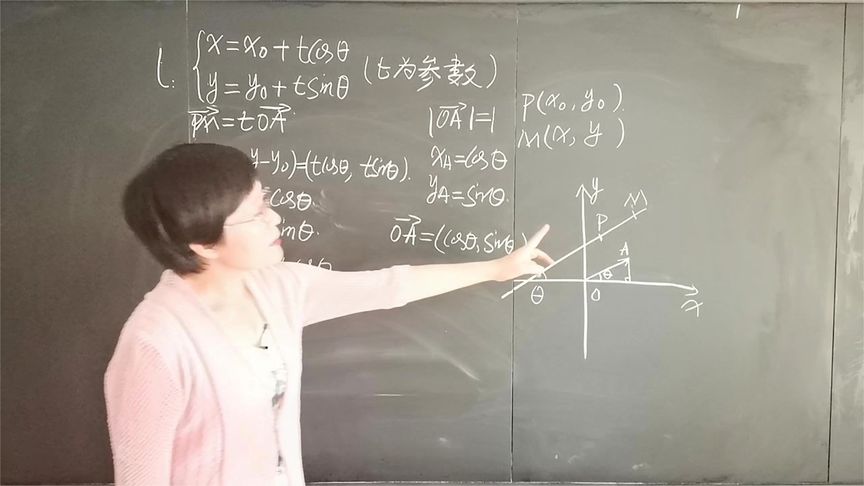 l: { x=x₀+tcosθ
y=y₀+tsinθ (t为参数)
PM=tOA
y-y₀)=(tcosθ, tsinθ).
cosθ.
inθ.
|OA|=1
x_A=cosθ
y_A=sinθ.
OA=(cosθ, sinθ)
P(x₀, y₀).
M(x, y)
y
M
P
A
θ
θ
O
x